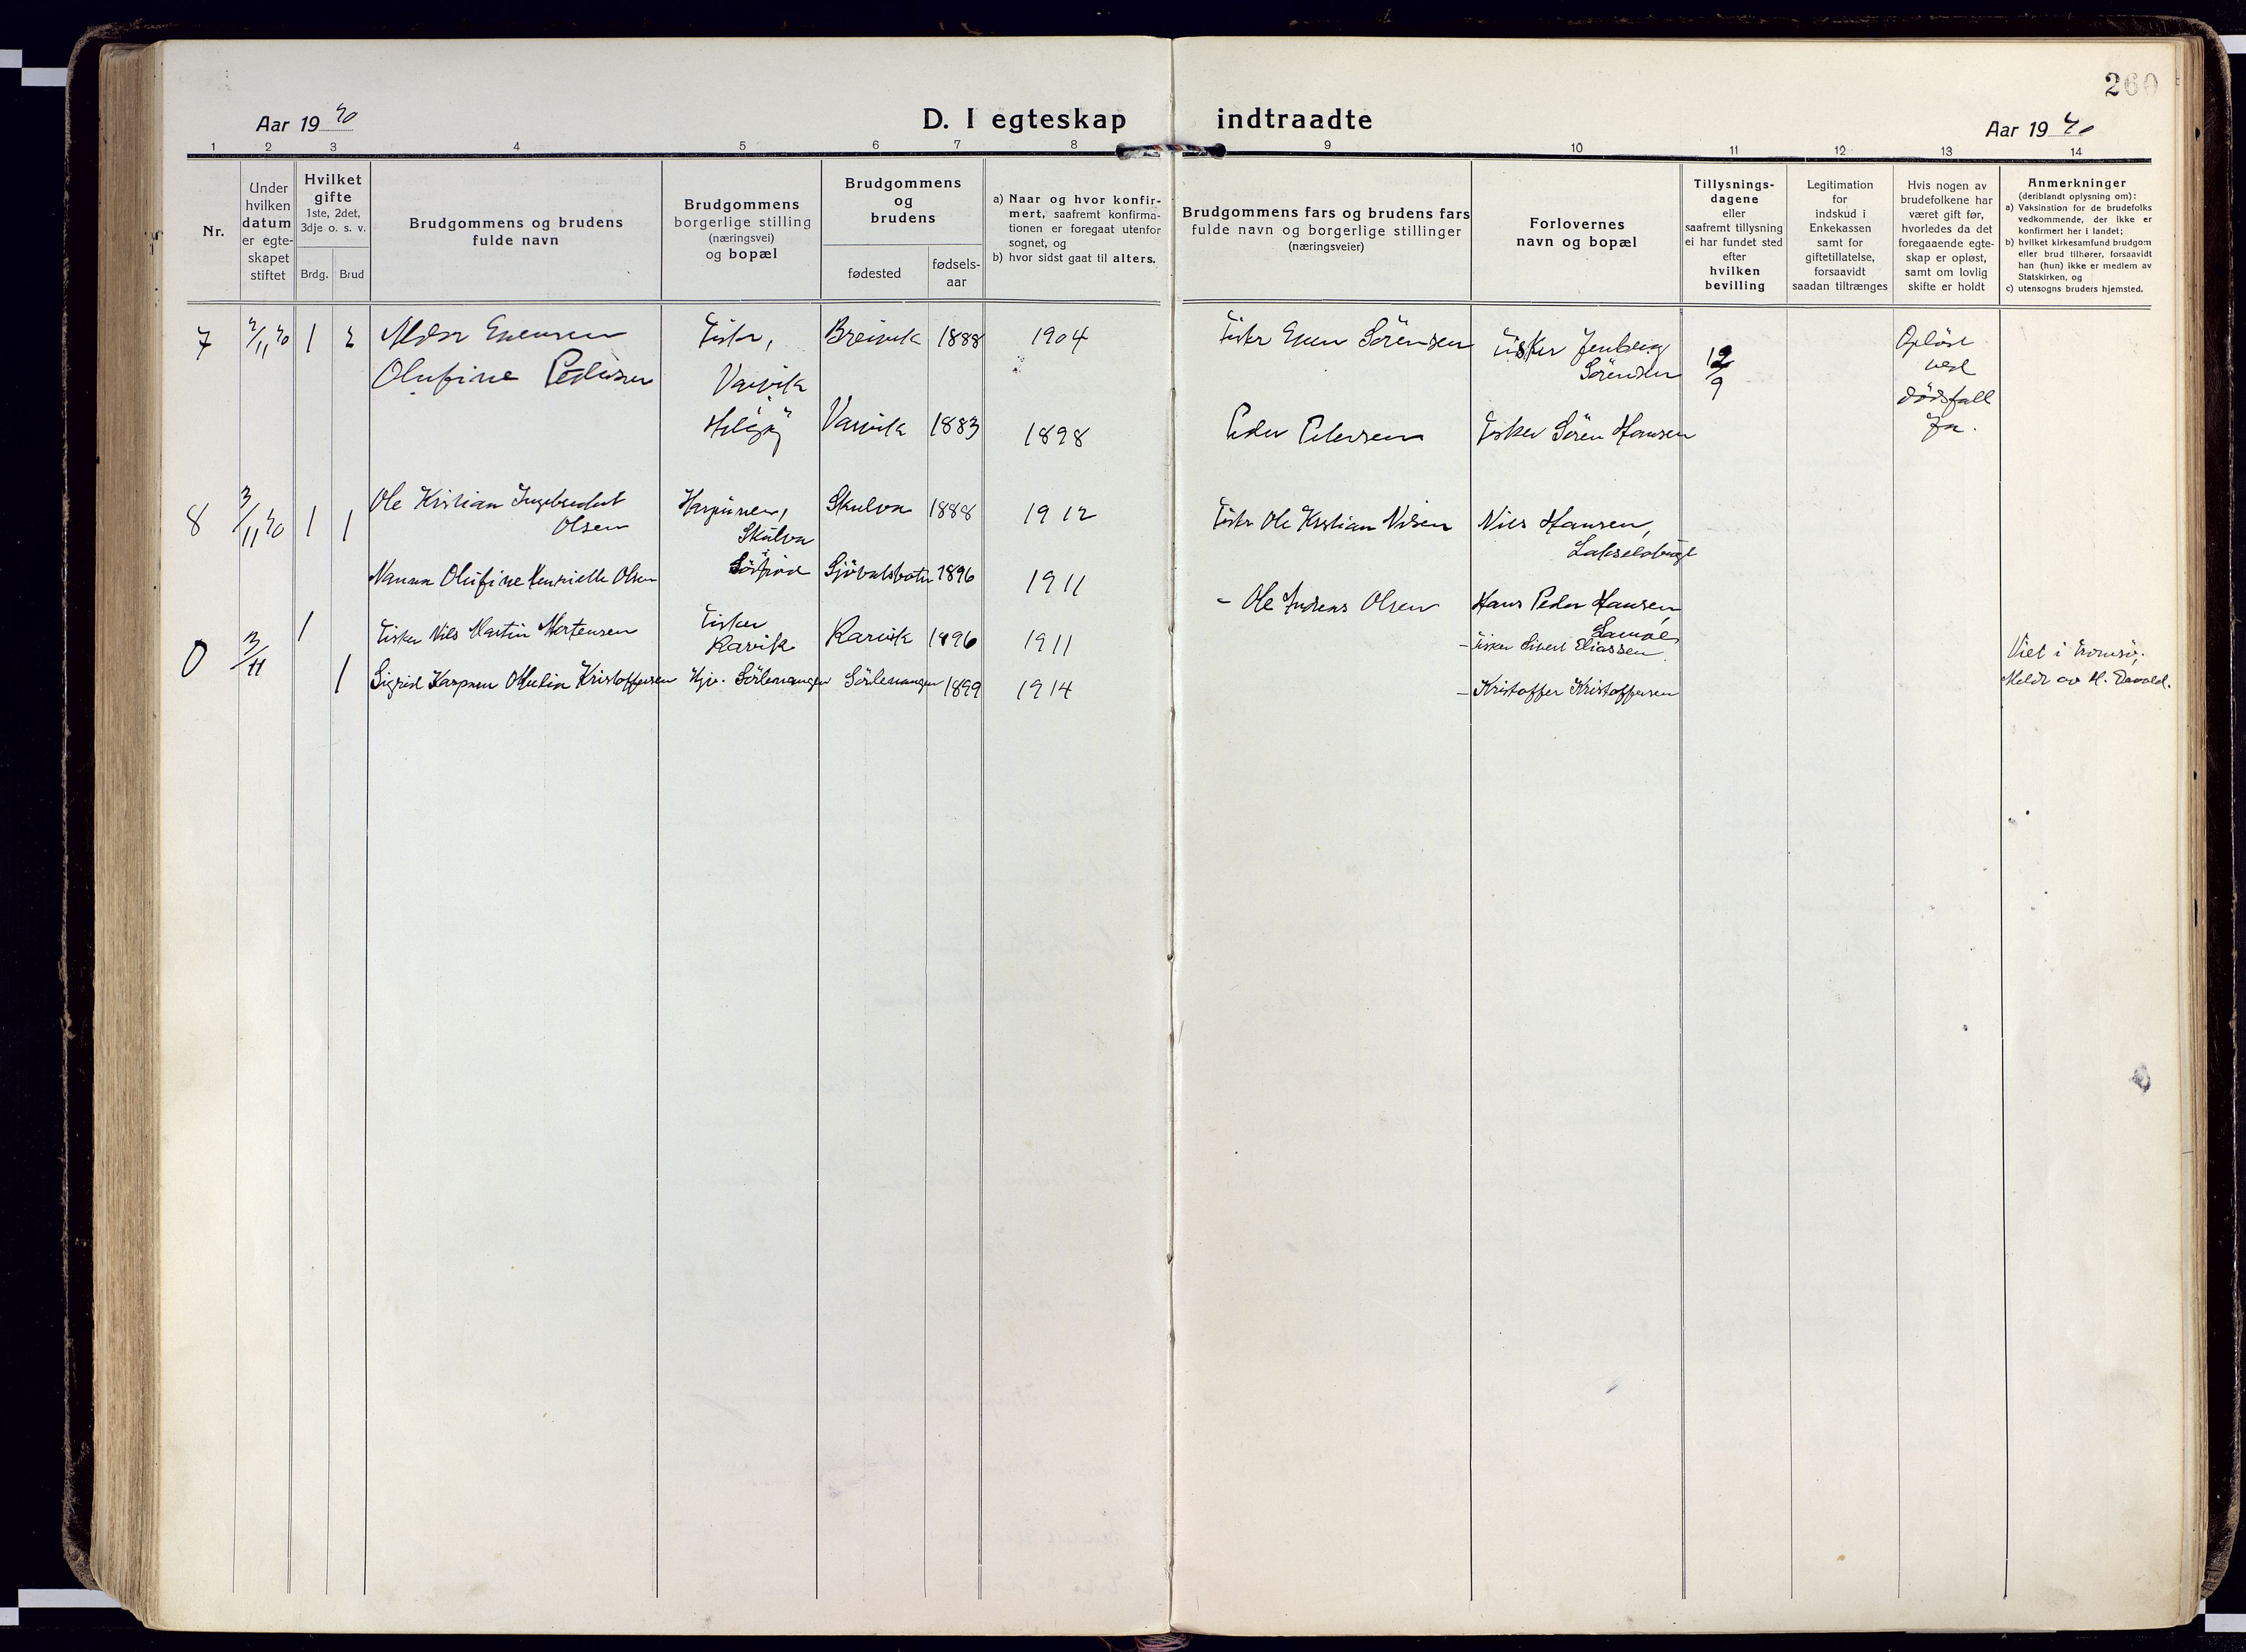 260
Aar 19
D. I egteskap indtraadte
Aar 19
1 2 3 4 5 6 7 8 9 10 11 12 13 14
Nr.
Under
hvilken
datum
er egte-
skapet
stiftet
Hvilket
gifte
1ste, 2det,
3dje o. s. v.
Brdg. Brud
Brudgommens og brudens
fulde navn
Brudgommens
borgerlige stilling
(næringsvei)
og bopæl
Brudgommens
og
brudens
fødested
fødsels-
aar
a) Naar og hvor konfir-
mert, saafremt konfirma-
tionen er foregaat utenfor
sognet, og
b) hvor sidst gaat til alters.
Brudgommens fars og brudens fars
fulde navn og borgerlige stillinger
(næringsveier)
Forlovernes
navn og bopæl
Tillysnings-
dagene
eller
saafremt tillysning
ei har fundet sted
efter
hvilken
bevilling
Legitimation
for
indskud i
Enkekassen
samt for
giftetillatelse,
forsaavidt
saadan tiltrænges
Hvis nogen av
brudefolkene har
været gift før,
hvorledes da det
foregaaende egte-
skap er opløst,
samt om lovlig
skifte er holdt
Anmerkninger
(deriblandt oplysning om):
a) Vaksination for de brudefolks
vedkommende, der ikke er
konfirmert her i landet;
b) hvilket kirkesamfund brudgom
eller brud tilhører, forsaavidt
han (hun) ikke er medlem av
Statskirken, og
c) utensogns bruders hjemsted.
7 1 2 Evensen Breivik 1888 1904 Sørensen Fisker Jenberg
Sørensen
12/9
Opløst
ved
dødsfall
Ja.
Olufine Pedersen
1883 1898 Peder Petersen Fisker Sören Hansen
8 3/11 1 1 Ole Kristian
Olsen
Skulva 1888 1912 Ole Kristian Nilsen Nils Hansen,
Skulva
Nanna Olufine Henriette Olsen 1896 1911
- Ole Olsen Hans Peder Hansen,
0 3/11 1 Fisker Nils Martin Mortensen Fisker
Karvik Karvik 1896 1911 - Fisker Sivert Eliassen.
1 Sigrid Kristoffersen Sörlenangen Sörlenangen 1899 1914 - Kristoffer Kristoffersen
Viet i Tromsø.
Meldt av